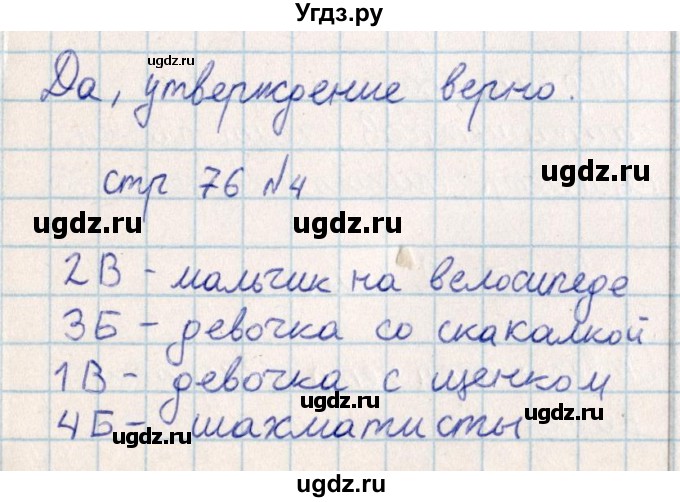 Угдз.ру
ugdz.ru ugdz.ru ugdz.ru
Да, утверждение верно.
ugdz.ru
стр 76 №4
ugdz.ru ugdz.ru
2В - мальчик на велосипеде
3Б - девочка со скакалкой
1В - девочка с щенком
ugdz.ru ugdz.ru
4Б - шахматисты
ugdz.ru ugdz.ru
ugdz.ru